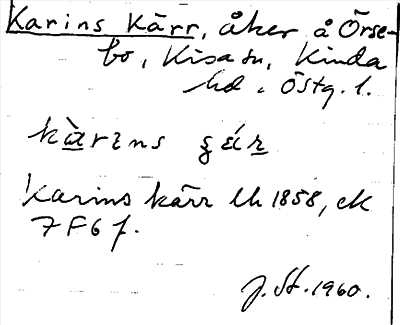 Karins Kärr, åker å Örse-
bo, Kisa sn, Kinda
hd, Östg. l.
kàrɩns ʂǽr
Karins kärr Lh 1858, ek
7F6f.
J. St. 1960.